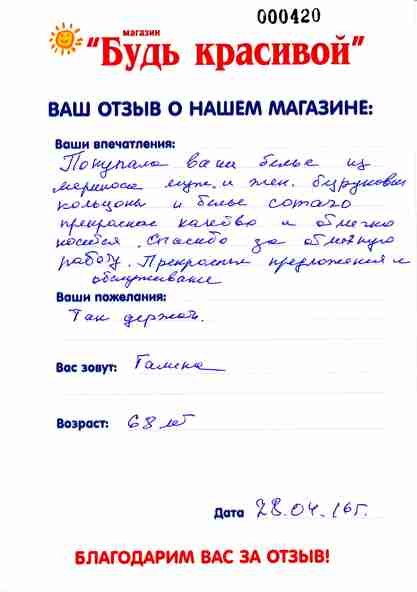 000420
магазин
"Будь красивой"
ВАШ ОТЗЫВ О НАШЕМ МАГАЗИНЕ:
Ваши впечатления:
Покупала ваш белье из
мериноса муж. и жен.
кальцоны и белье
прекрасное качество и отлично
носится. Спасибо за отличную
работу. Прекрасные предложения и
обслуживание
Ваши пожелания:
Так держать.
Вас зовут: Галина
Возраст: 68 лет
Дата 28.04.16г.
БЛАГОДАРИМ ВАС ЗА ОТЗЫВ!